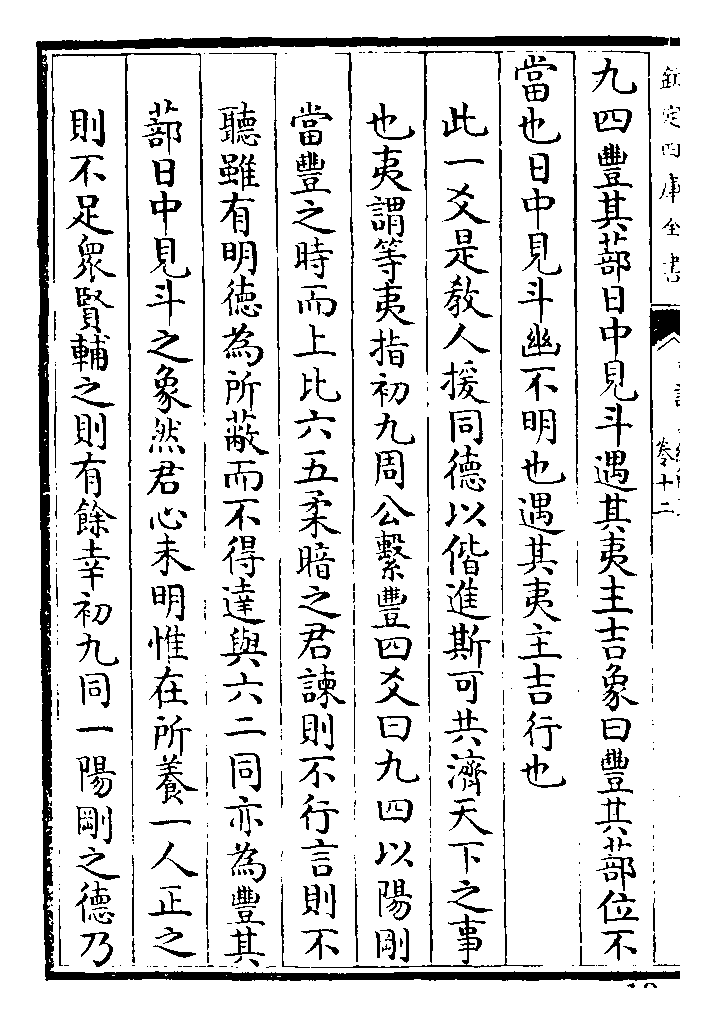 欽定四庫全書
卷十二
九四豐其蔀日中見斗遇其夷主吉象曰豐其蔀位不
當也日中見斗幽不明也遇其夷主吉行也
此一爻是教人援同德以偕進斯可共濟天下之事
也夷謂等夷指初九周公繫豐四爻曰九四以陽剛
當豐之時而上比六五柔暗之君諫則不行言則不
聽雖有明德為所蔽而不得達與六二同亦為豐其
蔀日中見斗之象然君心未明惟在所養一人正之
則不足衆賢輔之則有餘幸初九同一陽剛之德乃